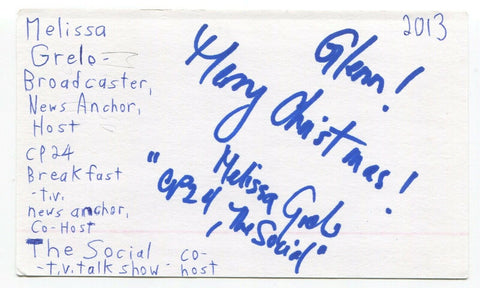 Melissa
Grelo-
Broadcaster,
News Anchor,
Host
CP24
Breakfast
-t.v.
news anchor,
Co-Host
The Social
-t.v. talk show - co-host
2013
Glenn!
Merry Christmas!
Melissa Grelo
"CP24, The Social"